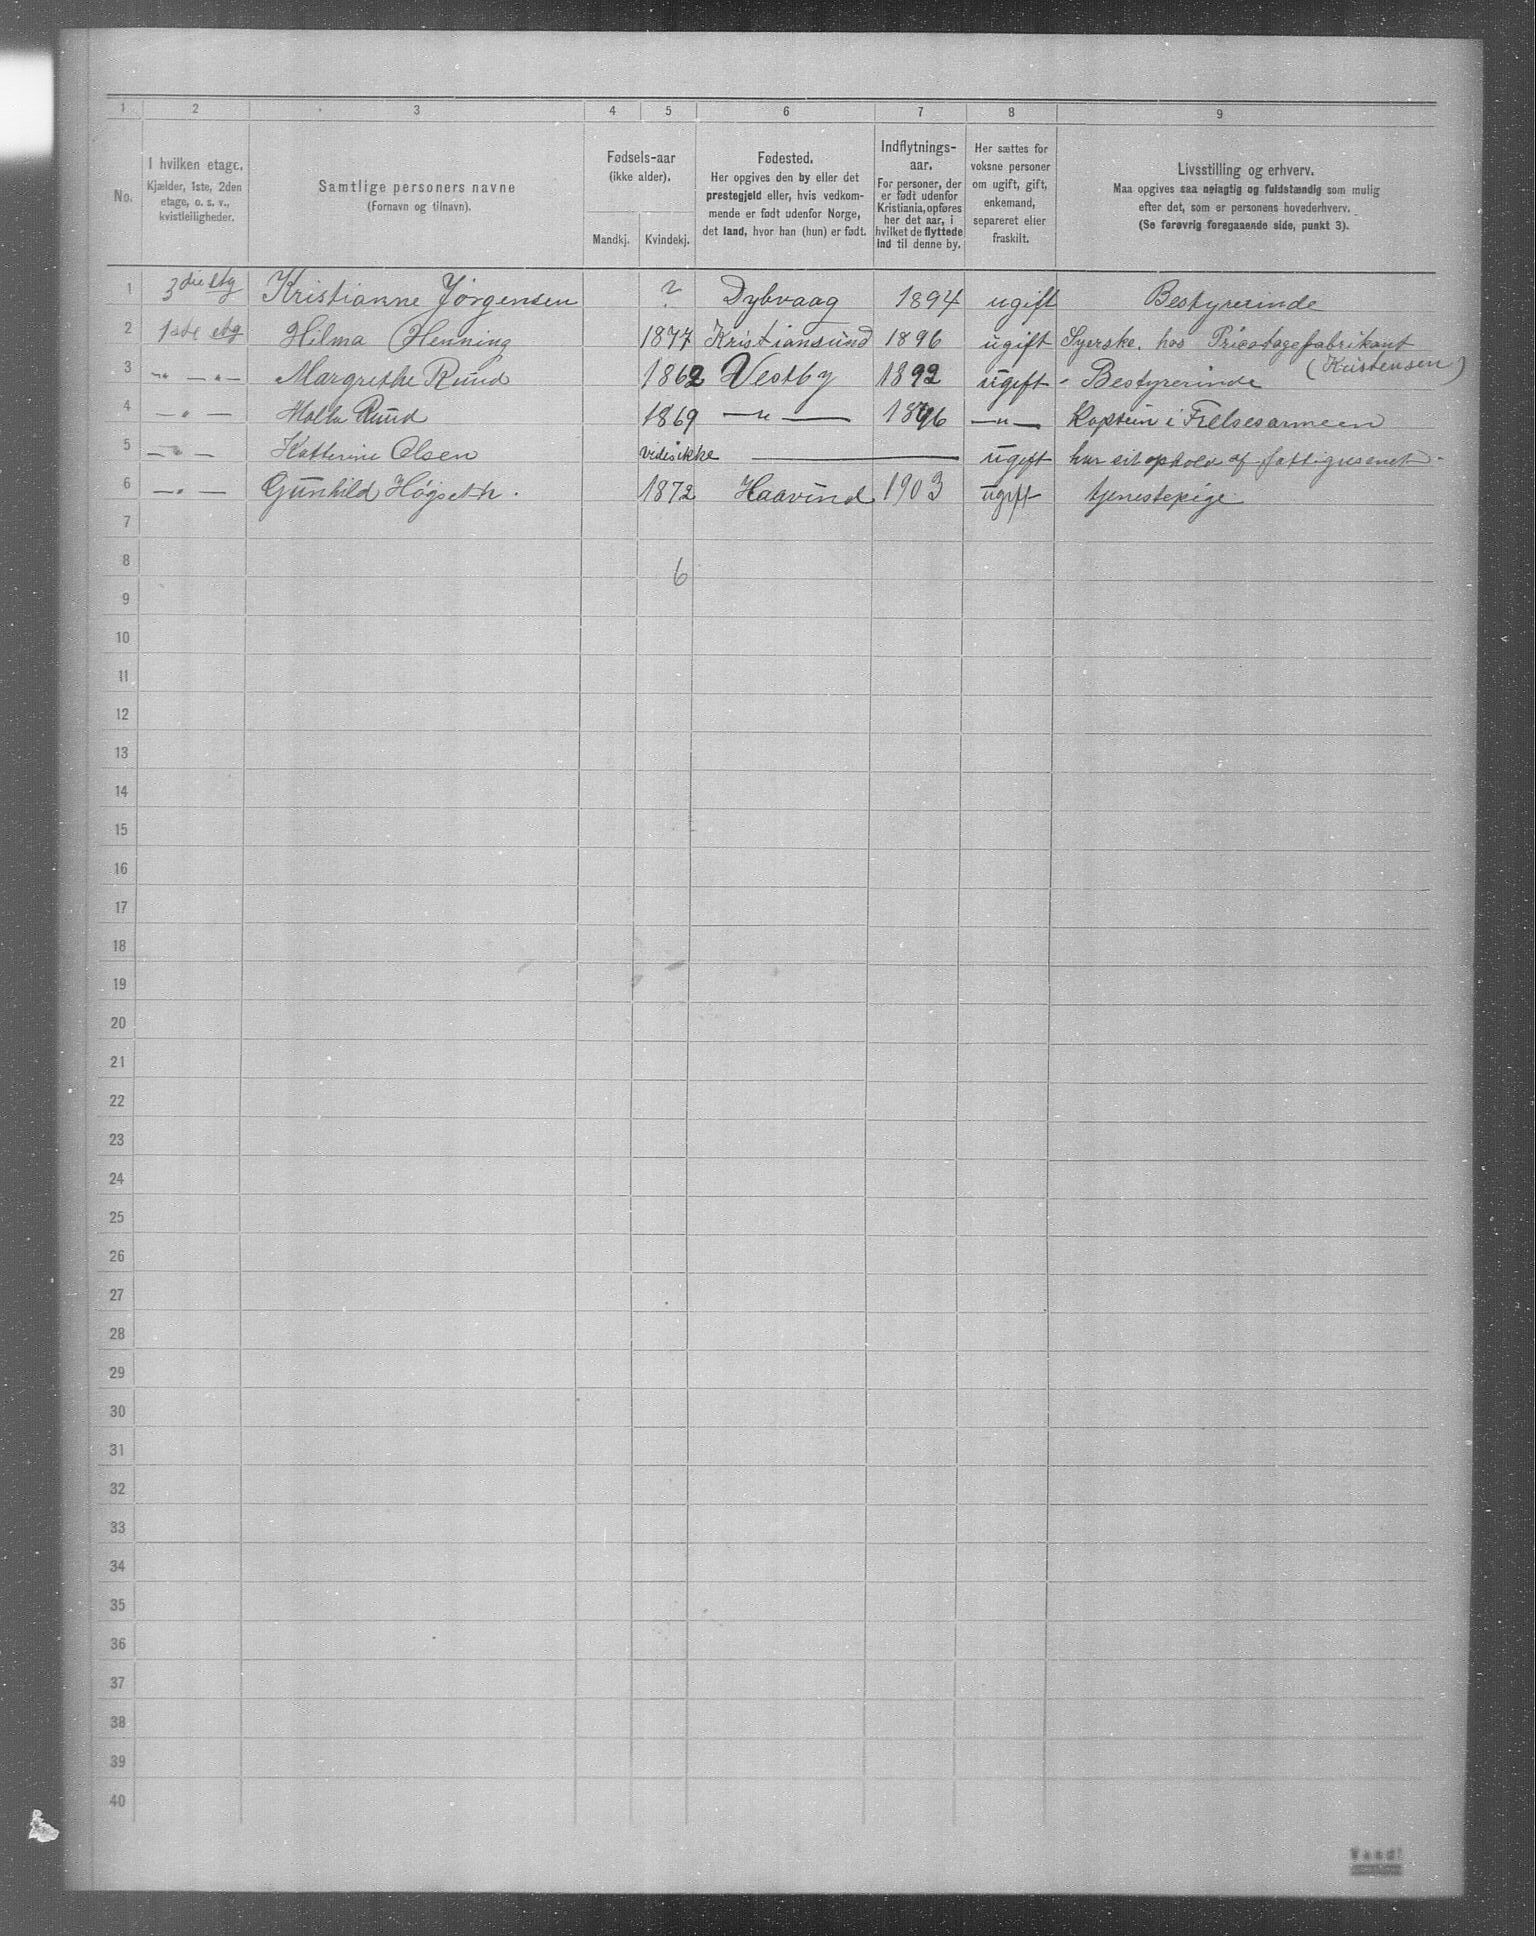 1 2 3 4 5 6 7 8 9
No.
I hvilken etage.
Kjælder, 1ste, 2den
etage, o. s. v.,
kvistleiligheder.
Samtlige personers navne
(Fornavn og tilnavn).
Fødsels-aar
(ikke alder).
Mandkj. Kvindekj.
Fødested.
Her opgives den by eller det
prestegjeld eller, hvis vedkom-
mende er født udenfor Norge,
det land, hvor han (hun) er født.
Indflytnings-
aar.
For personer, der
er født udenfor
Kristiania, opføres
her det aar, i
hvilket de flyttede
ind til denne by.
Her sættes for
voksne personer
om ugift, gift,
enkemand,
separeret eller
fraskilt.
Livsstilling og erhverv.
Maa opgives saa nøiagtig og fuldstændig som mulig
efter det, som er personens hovederhverv.
(Se forøvrig foregaaende side, punkt 3).
1 3die etg Kristianne Jørgensen ? Dybvaag 1894 ugift Bestyrerinde
2 1ste etg Hilma Henning 1877 Kristiansund 1896 ugift Syerske. hos Tricotagefabrikant
(Kristensen)
3 -"- -"- Margrethe Ruud 1862 Vestby 1892 ugift - Bestyrerinde
4 -"- Ruud 1869 -"- 1896 -"- Kaptein i Frelsesarmeen
5 -"- Katterine Olsen vides ikke ugift har sit ophold af fattigvesenet.
6 -"- Gunhild Høgseth. 1872 Haavind 1903 ugift tjenestepige
7
8 6
9
10
11
12
13
14
15
16
17
18
19
20
21
22
23
24
25
26
27
28
29
30
31
32
33
34
35
36
37
38
39
40
Vend!